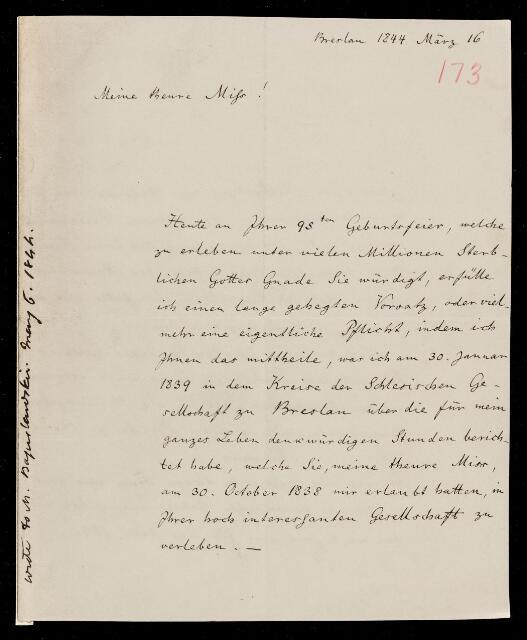 Breslau 1844 März 16
173
Meine theure Miss!
Heute an Ihrer 95ten Geburtsfeier, welche
zu erleben unter vielen Millionen Sterb-
lichen Gottes Gnade Sie würdigt, erfülle
ich einen lange gehegten Vorsatz, oder viel-
mehr eine eigentliche Pflicht, indem ich
Ihnen das mittheile, was ich am 30. Januar
1839 in dem Kreise der Schlesischen Ge-
sellschaft zu Breslau über die für mein
ganzes Leben denkwürdigen Stunden berich-
tet habe, welche Sie, meine theure Miss,
am 30. October 1838 mir erlaubt hatten, in
Ihrer hoch interessanten Gesellschaft zu
verleben. —
wrote to M. Boguslawski. May 6. 1844.